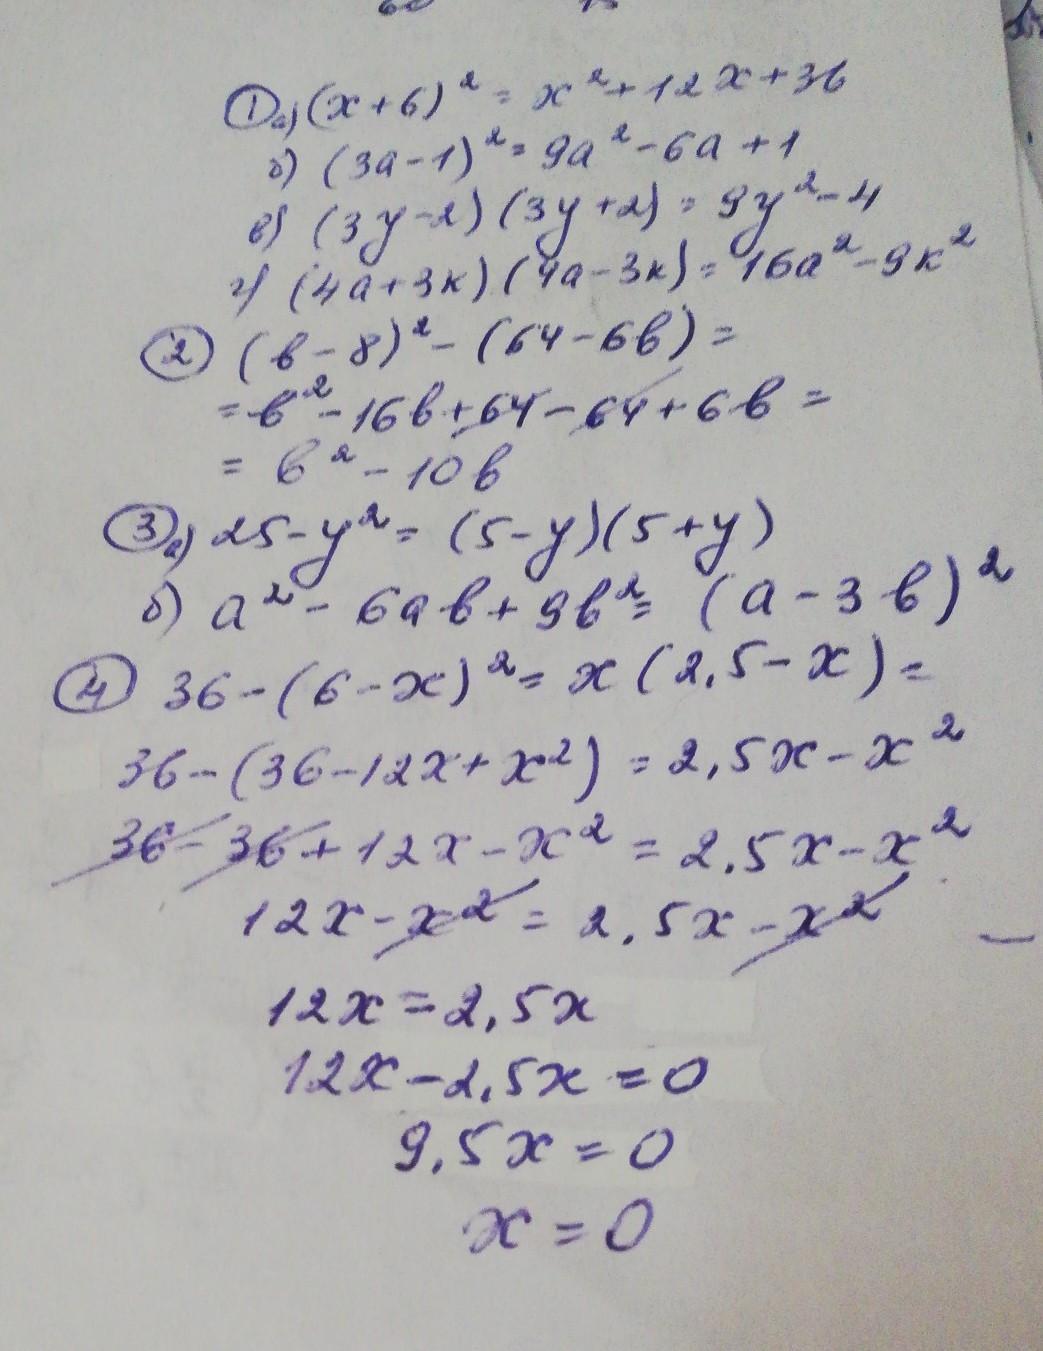 ① а) (x+6)² = x²+12x+36
б) (3a-1)² = 9a²-6a+1
в) (3y-2)(3y+2) = 9y²-4
г) (4a+3к)(4a-3к) = 16a²-9к²
② (в-8)²-(64-6в) =
= в²-16в+64-64+6в =
= в²-10в
③ а) 25-y² = (5-y)(5+y)
б) a²-6aв+9в² = (a-3в)²
④ 36-(6-x)² = x(2,5-x) =
36-(36-12x+x²) = 2,5x-x²
36-36+12x-x² = 2,5x-x²
12x-x² = 2,5x-x²
12x = 2,5x
12x-2,5x = 0
9,5x = 0
x = 0